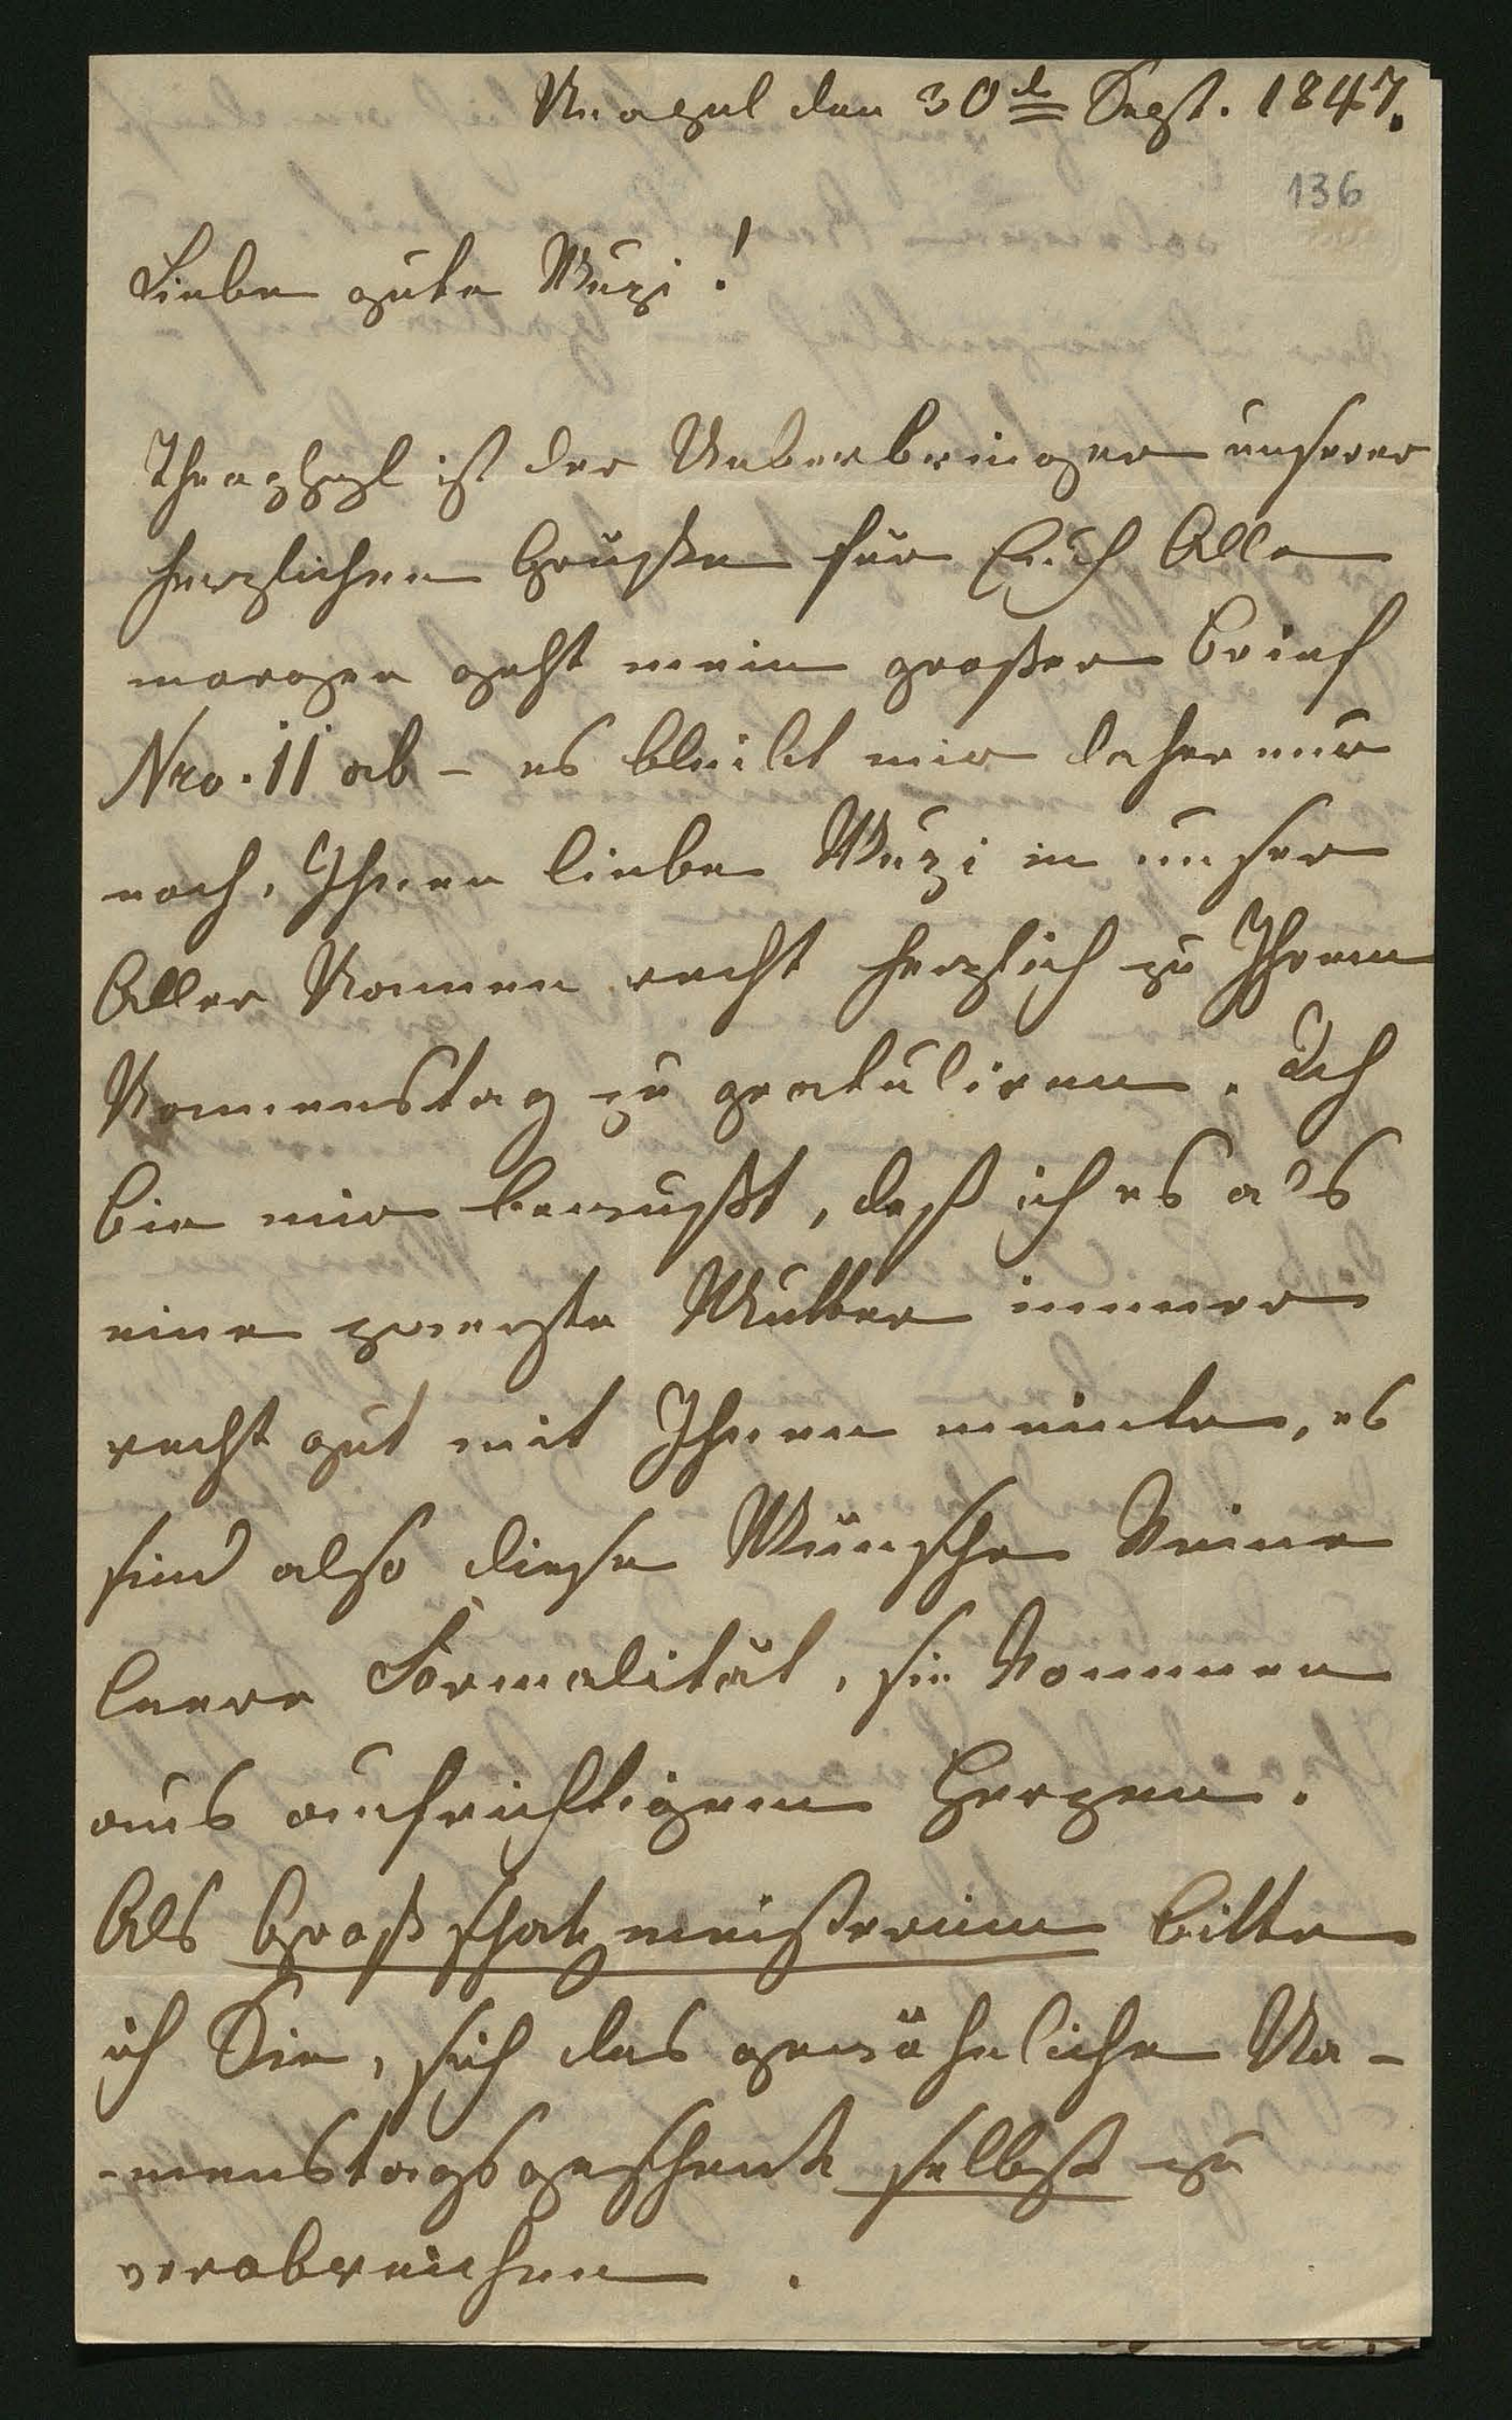 Neapel den 30t Sept. 1847.
136
Liebe gute Muzi!
Theophyl ist der Ueberbringer unserer
herzlichen Grüße für Euch Alle
morgen geht mein großer Brief
Nro. 11 ab – es bleibt mir daher nur
noch, Ihnen liebe Muzi in unser
Aller Namen recht herzlich zu Ihrem
Namenstag zu gratuliren. Ich
bin mir bewußt, daß ich es als
eine zweyte Mutter immer
recht gut mit Ihnen meinte, es
sind also diese Wünsche keine
leere Formalität, sie kommen
aus aufrichtigem Herzen.
Als Großschatzmeisterinn bitte
ich Sie, sich das gewöhnliche Na-
-menstagsgeschenk selbst zu
verabreichen.